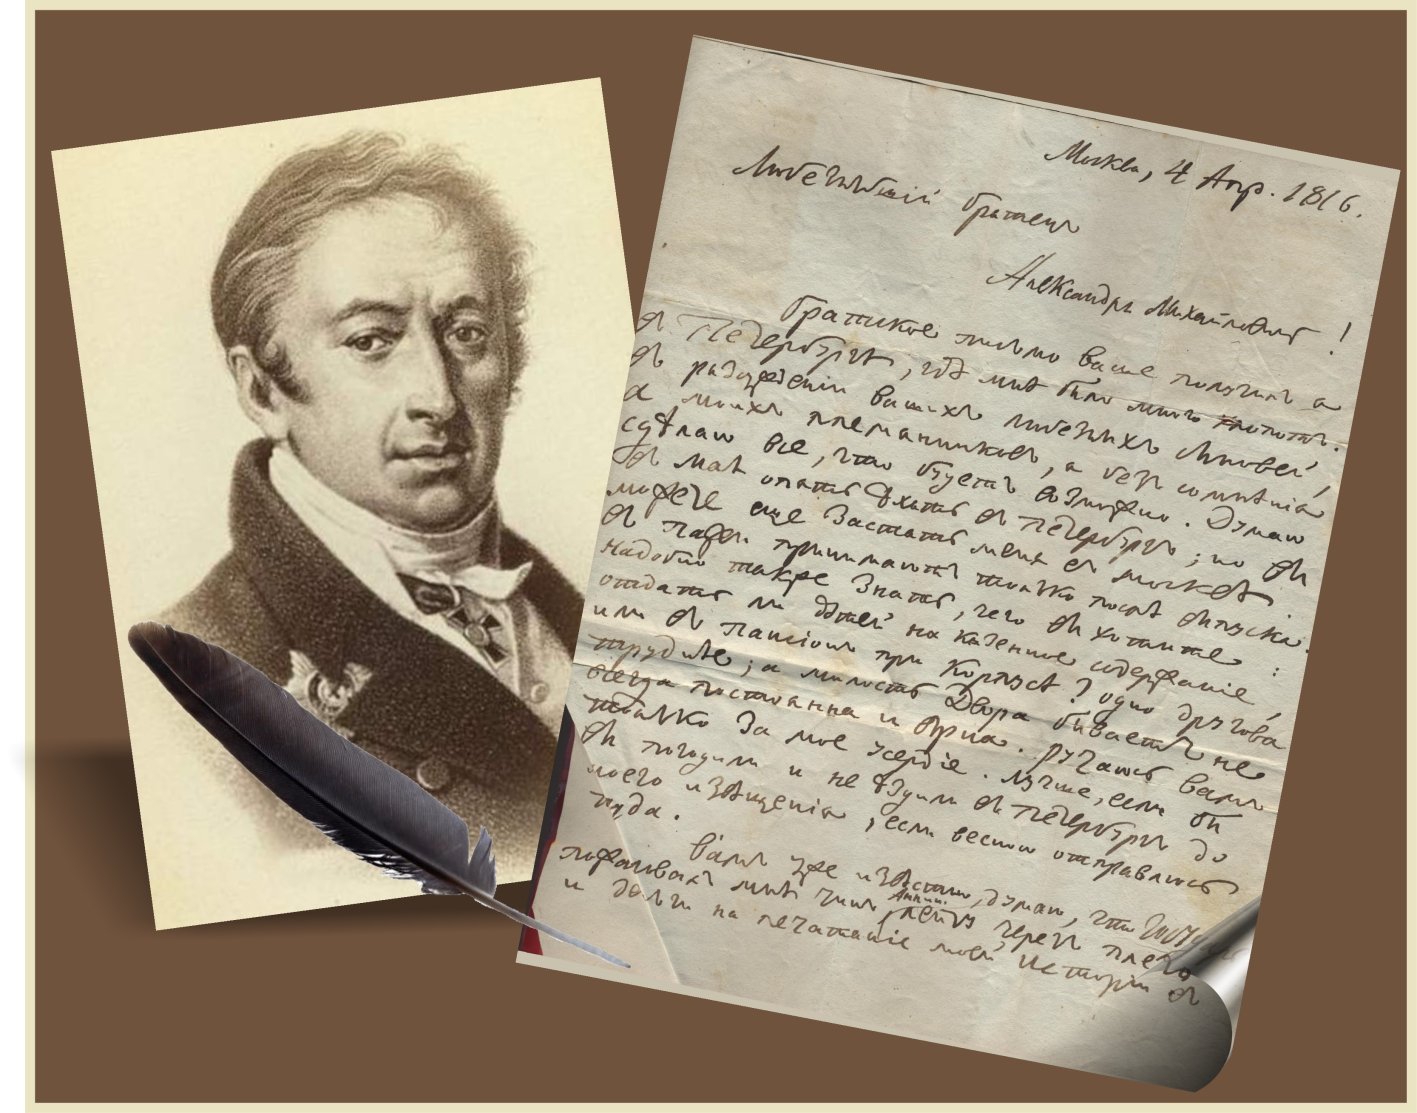 Москва, 4 Апр. 1816.
Любезнѣйшій братецъ
Александръ Михайловичь!
Братское письмо ваше получилъ я
въ Петербургѣ, гдѣ мнѣ было много хлопотъ.
въ разсужденіи вашихъ любезныхъ сыновей,
а моихъ племянниковъ, я безъ сомнѣнія
сдѣлаю все, что будетъ возможно. Думаю
въ Маѣ опять ѣхать въ Петербургъ; но вы
можете еще застать меня въ Москвѣ.
въ пажи принимаютъ только послѣ выпуска.
надобно также знать, чего вы хотите:
отдать ли дѣтей на казенное содержаніе,
или въ пансіонъ при Корпусѣ? одно другова
труднѣе; а милость Двора бываетъ не
всегда постоянна и
только за мое усердіе. Лучше, если бы
вы погодили и не ѣздили въ Петербургъ до
моего извѣщенія, если весною отправлюсь
туда.
вамъ уже извѣстно, думаю, что Государь
пожаловалъ мнѣ чинъ Аннин. ленту черезъ плечо
и деньги на печатаніе моей Исторіи въ